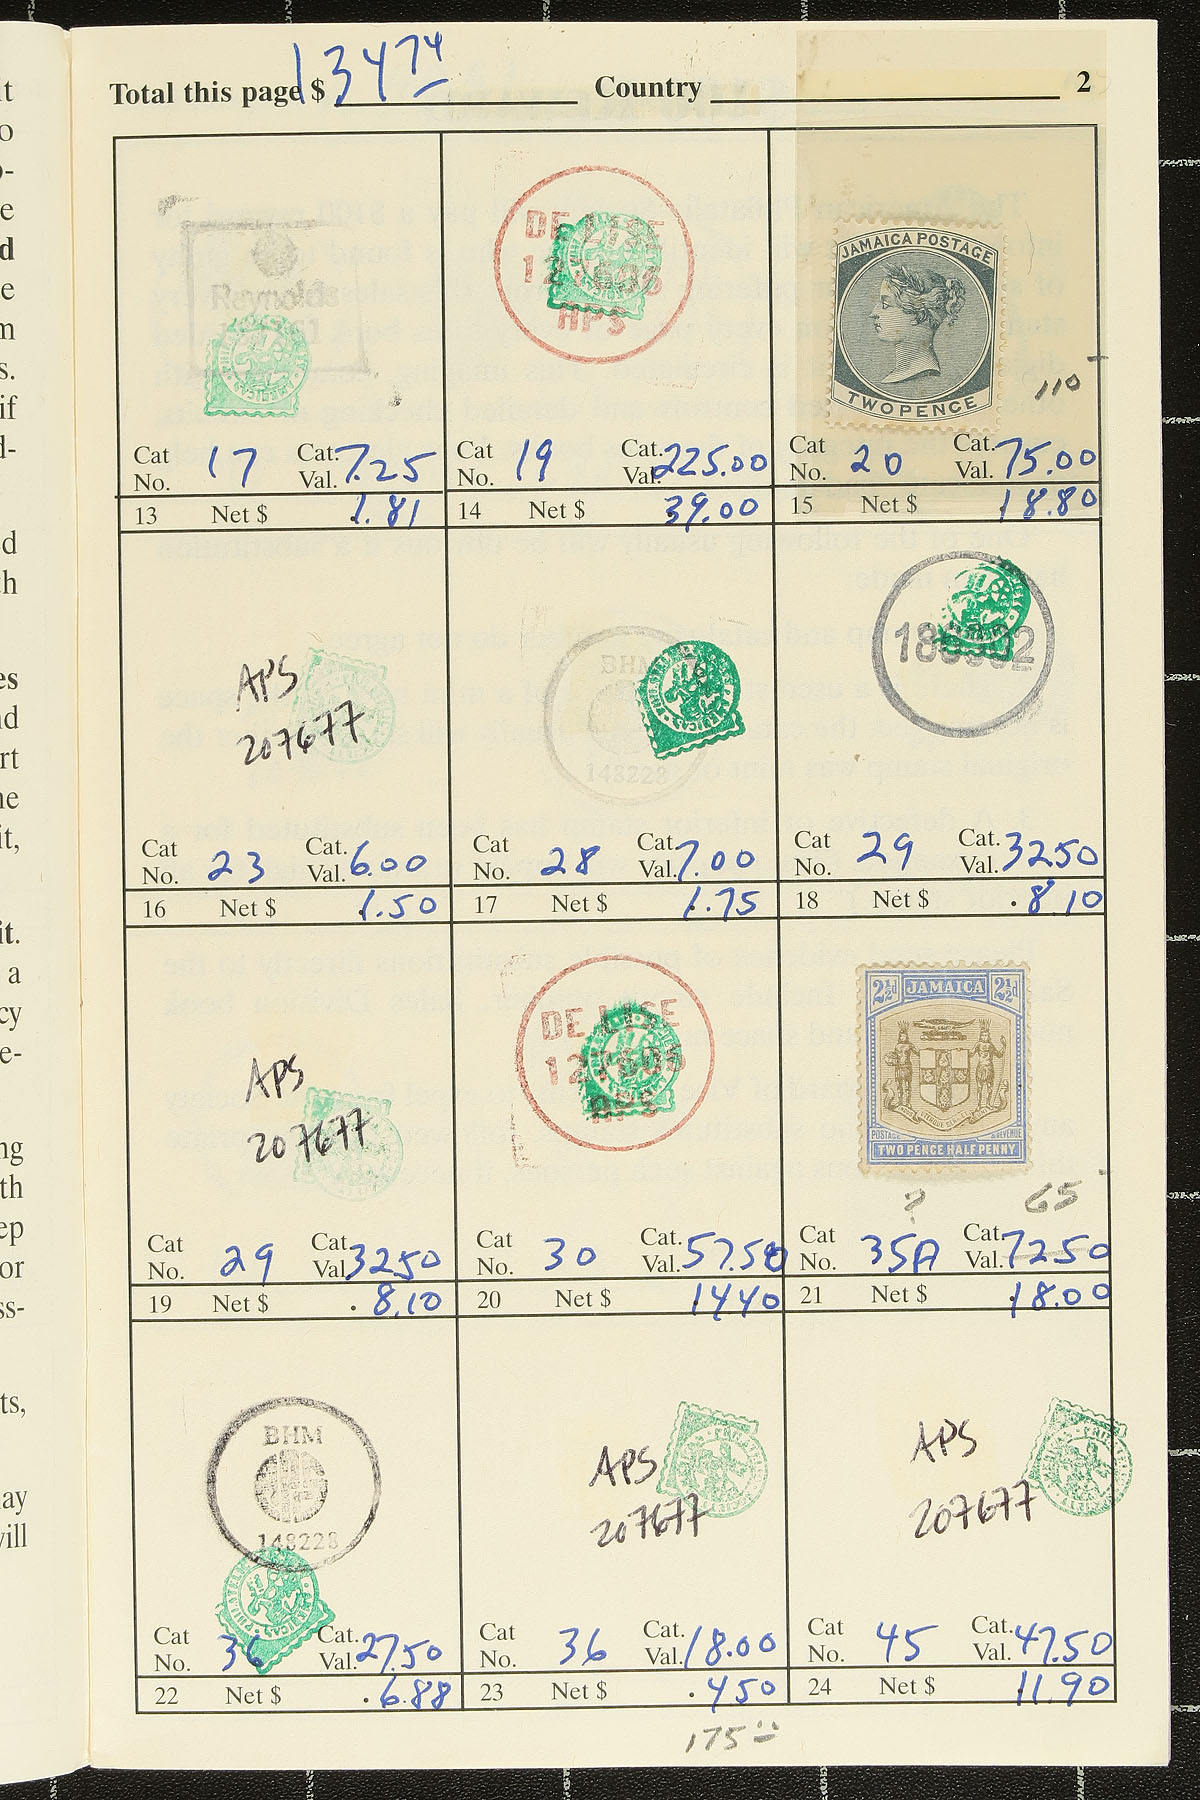 Total this page $ 134 74 Country 2
Reynolds
Cat No. 17 Cat. Val. 7.25
13 Net $ 1.81
DE LISE
APS
Cat No. 19 Cat. Val. 225.00
14 Net $ 39.00
JAMAICA POSTAGE
TWO PENCE
110 -
Cat No. 20 Cat. Val. 75.00
15 Net $ 18.80
APS
207677
Cat No. 23 Cat. Val. 6.00
16 Net $ 1.50
BHM
148228
Cat No. 28 Cat. Val. 7.00
17 Net $ 1.75
Cat No. 29 Cat. Val. 32 50
18 Net $ . 8 10
APS
207677
Cat No. 29 Cat. Val. 32 50
19 Net $ . 8.10
DE LISE
127605
APS
Cat No. 30 Cat. Val. 57.50
20 Net $ 14 40
2½d JAMAICA 2½d
POSTAGE & REVENUE
TWO PENCE HALF PENNY
? 65 -
Cat No. 35A Cat. Val. 72 50
21 Net $ 18.00
BHM
148228
Cat No. 36 Cat. Val. 27.50
22 Net $ . 6.88
APS
207677
Cat No. 36 Cat. Val. 18.00
23 Net $ . 4 50
APS
207677
Cat No. 45 Cat. Val. 47.50
24 Net $ 11.90
175 =